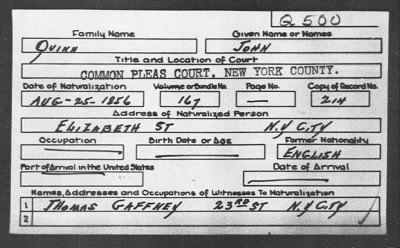 Q 500
Family Name Given Name or Names
QUINN JOHN
Title and Location of Court
COMMON PLEAS COURT, NEW YORK COUNTY.
Date of Naturalization Volume or Bundle No. Page No. Copy of Record No.
AUG-25-1856 167 — 214
Address of Naturalized Person
ELIZABETH ST N.Y CITY
Occupation Birth Date or Age Former Nationality
ENGLISH
Port of Arrival in the United States Date of Arrival
Names, Addresses and Occupations of Witnesses To Naturalization
1 THOMAS GAFFNEY 23RD ST N.Y CITY
2